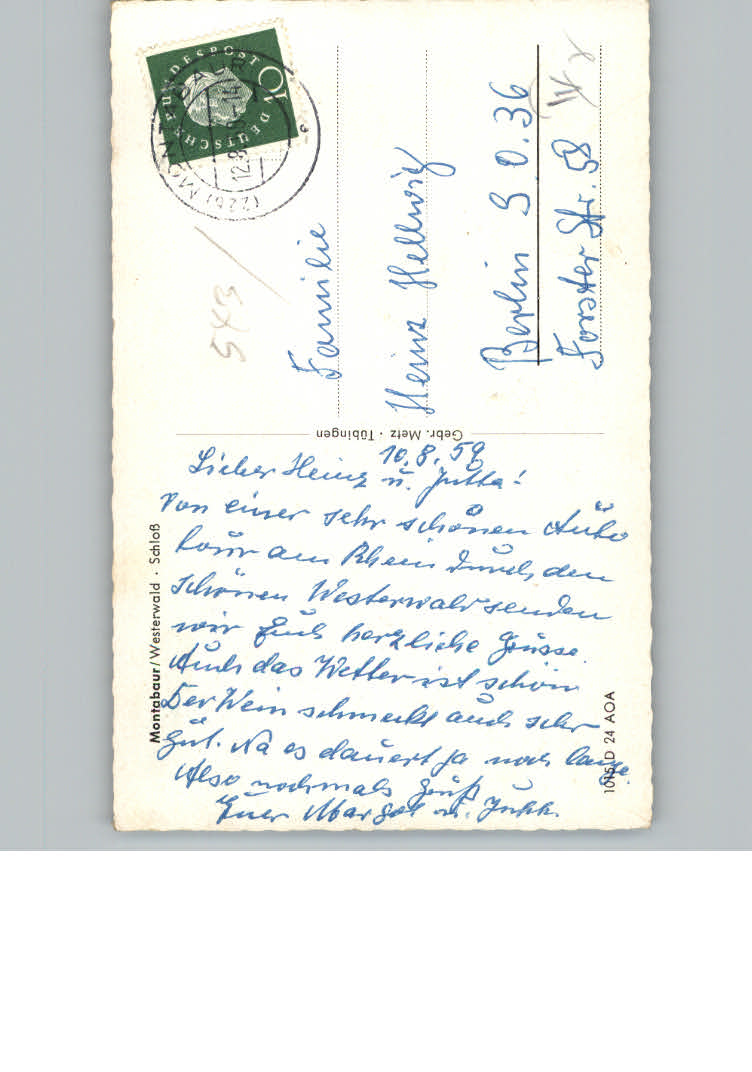 10.8.59
Lieber Heinz u. Jutta!
Von einer sehr schönen Auto
tour am Rhein durch den
schönen Westerwald senden
wir Euch herzliche Grüsse.
Auch das Wetter ist schön
Der Wein schmeckt auch sehr
gut. Na es dauert ja noch lange.
Also nochmals Gruß
Euer Margot u.
Montabaur/Westerwald · Schloß
1015 D 24 AOA
Gebr. Metz · Tübingen
Familie
Heinz Hellwig
Berlin S.O.36
Forster Str. 58
543
DEUTSCHE BUNDESPOST
10
(22b) MONTABAUR
12.8.